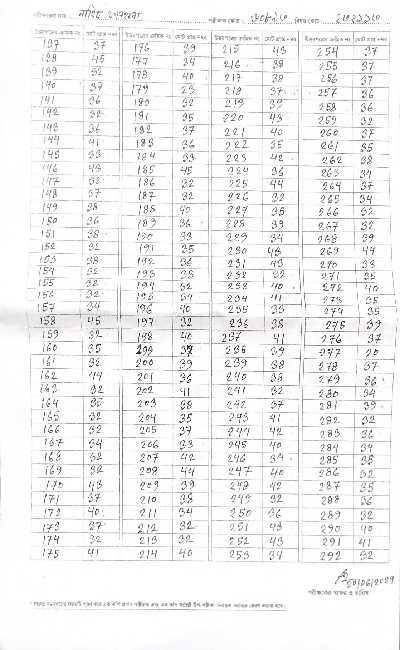 137 37 176 39 215 43 254 37
138 45 177 34 216 38 255 37
139 32 178 40 217 38 256 37
140 37 179 23 218 37 257 36
141 36 180 32 219 33 258 36
142 32 181 35 220 43 259 32
143 36 182 37 221 40 260 37
144 41 183 36 222 35 261 35
145 33 184 33 223 42 262 38
146 43 185 45 224 36 263 34
147 32 186 32 225 44 264 37
148 37 187 32 226 32 265 34
149 38 188 40 227 35 266 32
150 36 189 36 228 33 267 32
151 38 190 33 229 34 268 39
152 32 191 35 230 43 269 44
153 38 192 36 231 43 270 33
154 32 193 38 232 32 271 35
155 32 194 32 233 40 272 40
156 32 195 34 234 41 273 35
157 34 196 40 235 33 274 35
158 45 197 32 236 38 275 39
159 32 198 40 237 41 276 37
160 35 199 37 238 39 277 20
161 32 200 39 239 38 278 37
162 44 201 36 240 38 279 36
163 32 202 41 241 32 280 34
164 35 203 38 242 37 281 39
165 32 204 35 243 41 282 32
166 32 205 37 244 42 283 36
167 34 206 33 245 40 284 34
168 32 207 42 246 34 285 35
169 32 208 44 247 40 286 32
170 43 209 39 248 42 287 35
171 37 210 38 249 32 288 36
172 40 211 34 250 36 289 32
173 27 212 32 251 43 290 40
174 32 213 32 252 43 291 41
175 41 214 40 253 34 292 32